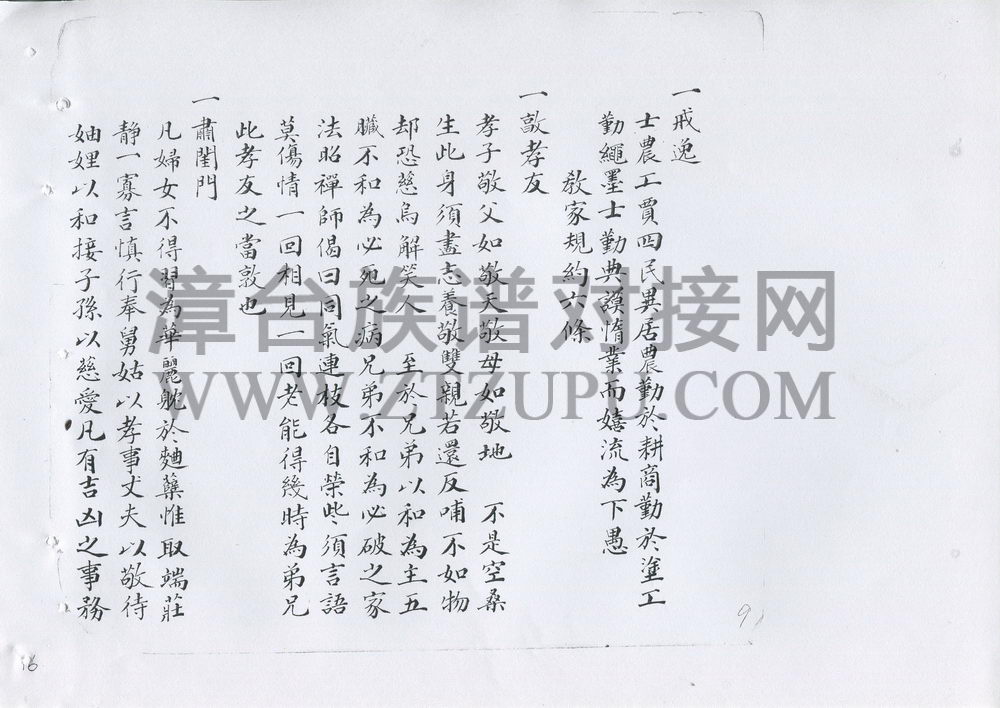 一戒逸
士農工賈四民異居農勤於耕商勤於塗工
勤繩墨士勤典謨惰業而嬉流為下愚
教家規約六條
一敦孝友
孝子敬父如敬天敬母如敬地 不是空桑
生此身須盡志養敬雙親若還反哺不如物
却恐慈烏解笑人 至於兄弟以和為主五
臟不和為必死之病兄弟不和為必破之家
法昭禪師偈曰同氣連枝各自榮些須言語
莫傷情一回相見一回老能得幾時為弟兄
此孝友之當敦也
一肅閨門
凡婦女不得習為華麗躭於麯蘖惟取端莊
靜一寡言慎行奉舅姑以孝事丈夫以敬待
妯娌以和接子孫以慈愛凡有吉凶之事務
9
16
漳台族谱对接网
WWW.ZTZUPU.COM